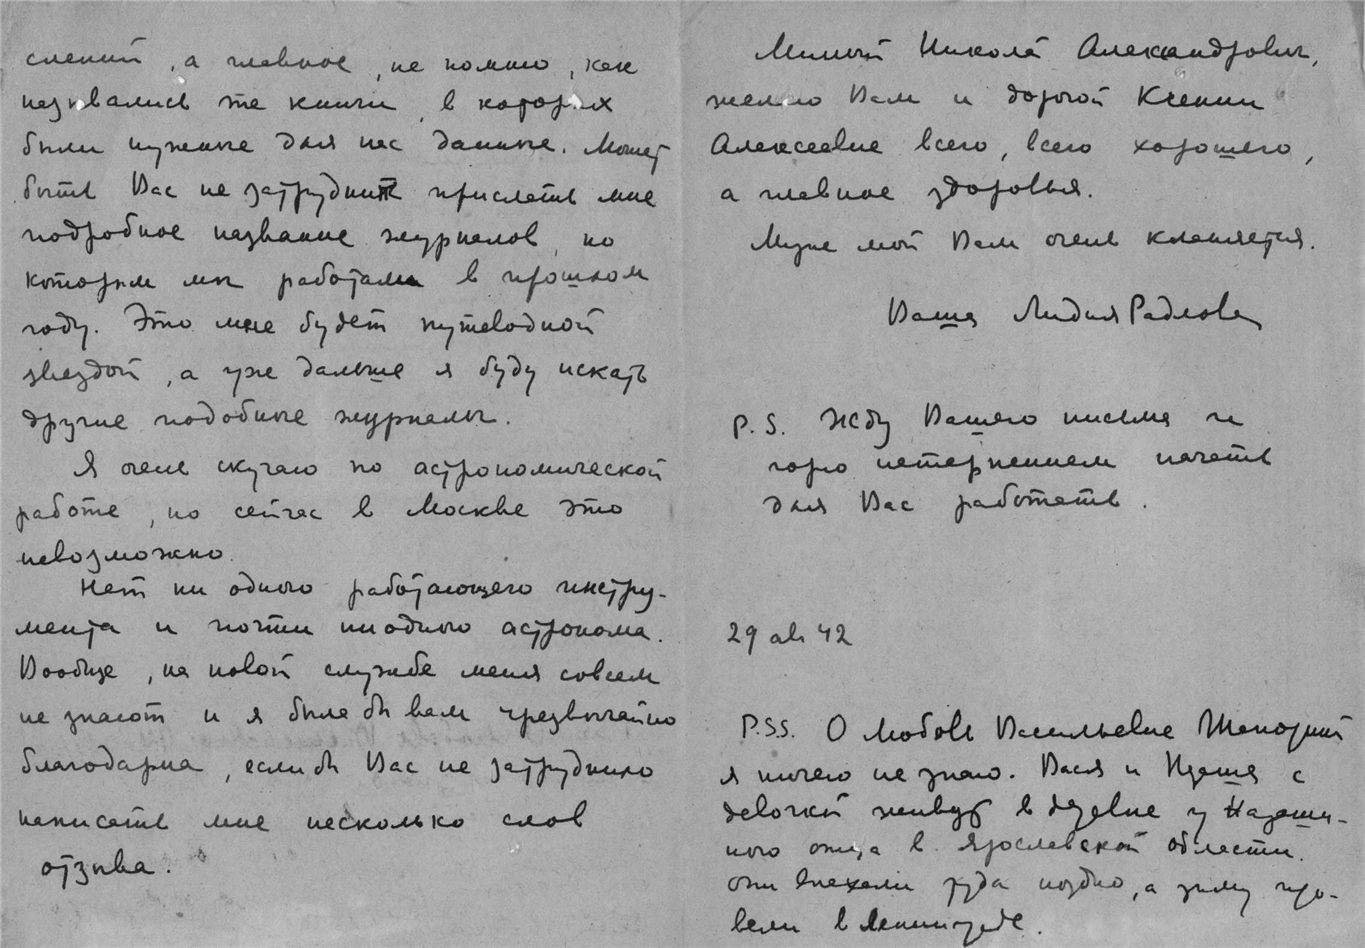 слений, а главное, не помню, как
назывались те книги, в которых
были нужные для нас данные. Может
быть Вас не затруднит прислать мне
подробное название журналов, по
которым мы работали в прошлом
году. Это мне будет путеводной
звездой, а уже дальше я буду искать
другие подобные журналы.
Я очень скучаю по астрономической
работе, но сейчас в Москве это
невозможно.
Нет ни одного работающего инстру-
мента и почти ниодного астронома.
Вообще, на новой службе меня совсем
не знают и я была бы вам чрезвычайно
благодарна, если бы Вас не затруднило
написать мне несколько слов
отзыва.
Милый Николай Александрович,
желаю Вам и дорогой Ксении
Алексеевне всего, всего хорошего,
а главное здоровья.
Муж мой Вам очень кланяется.
Ваша Лидия Радлова
P.S. Жду Вашего письма и
горю нетерпением начать
для Вас работать.
29 авг 42
P.SS. О Любовь Васильевне
я ничего не знаю. Вася и Наташа с
девочкой живут в деревне у Наташи-
ного отца в Ярославской области.
Они выехали туда поздно, а зиму про-
вели в Ленинграде.